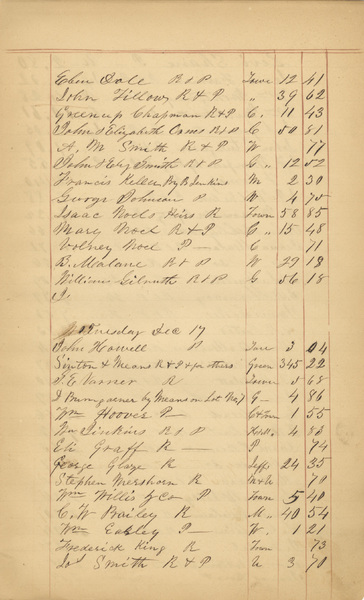 Eben Dole R & P Town 12 41
John Fillows R & P " 39 62
Greenup Chapman R & P C. 11 43
John & Elizabeth R & P C 50 81
A. M Smith R & P W 77
John & Eliz Smith R & P C " 12 52
Francis Keller By B Jenkins M 2 30
George Johnson P W 4 75
Isaac Noels Heirs R Town 58 85
Mary Noel R & P C " 15 48
Volney Noel P — C 71
B. Malane R & P W 29 18
William Gilruth R & P G 56 18
J.
Wednesday Dec 17
John Howell P 3 04
Sinton & Means R & P & for others Green 345 22
T. C Varner R Town 5 68
J Bumgarner by Means on Lot No 7 G — 4 86
Wm Hoover P — 1 55
Wm Jinkins R & P 4 86
Eli Graff R — P 74
George Glaze R Jeffs 24 35
Stephen Mershorn R 70
Wm Willis & Co P Town 5 40
C. W Bailey R M " 40 54
Wm Easley P — W. 1 21
Frederick King R Town 73
Jos Smith R & P U 3 70